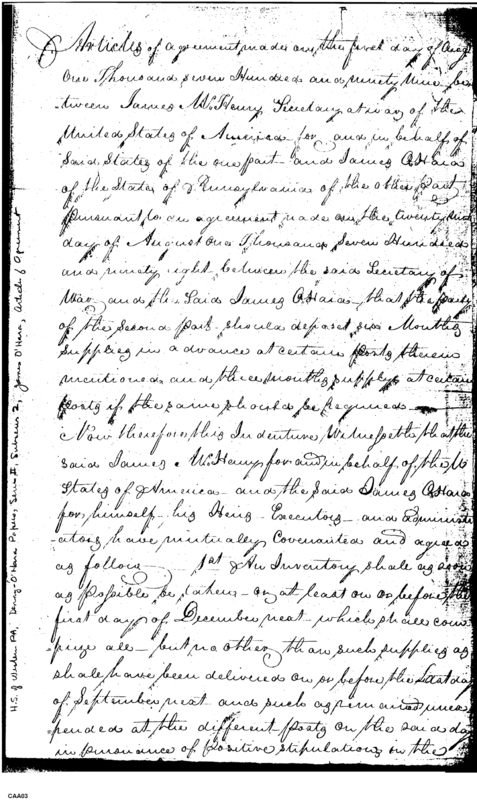 Articles of agreement made on the first day of Augt
One Thousand seven Hundred and ninety Nine be
tween James McHenry Secretary at war of the
United States of America for and in behalf of
Said States of the one part - and James OHara
of the State of Pennsylvania of the other Part
pursuant to an agreement made on the twenty
day of August One Thousand Seven Hundred
and ninety eight between the said Secretary of
War and the Said James OHara - that the party
of the Second part should deposit six Months
supplies in advance at certain posts therein
mentioned and three months supplys at certain
posts if the same should be required
Now therefore this Indenture Witnesseth that the
said James McHenry for and in behalf of the U
States of America - and the Said James OHara
for himself - his Heirs - Executors - and Administ
ators have mutually Covenanted and agreed
as follows 1st An Inventory shall as soon
as possible be taken - or at least on or before the
first day of December next - which shall com
prize all - but no other than such supplies as
shall have been delivered on or before the Last day
of September next and such as remained unex
pended at the different posts on the said day
in pursuance of positive stipulations in the
H.S. of Western PA, Denny-O'Hara Papers, Series II, Subseries 2, James O'Hara, Article of Agreement
CAA03